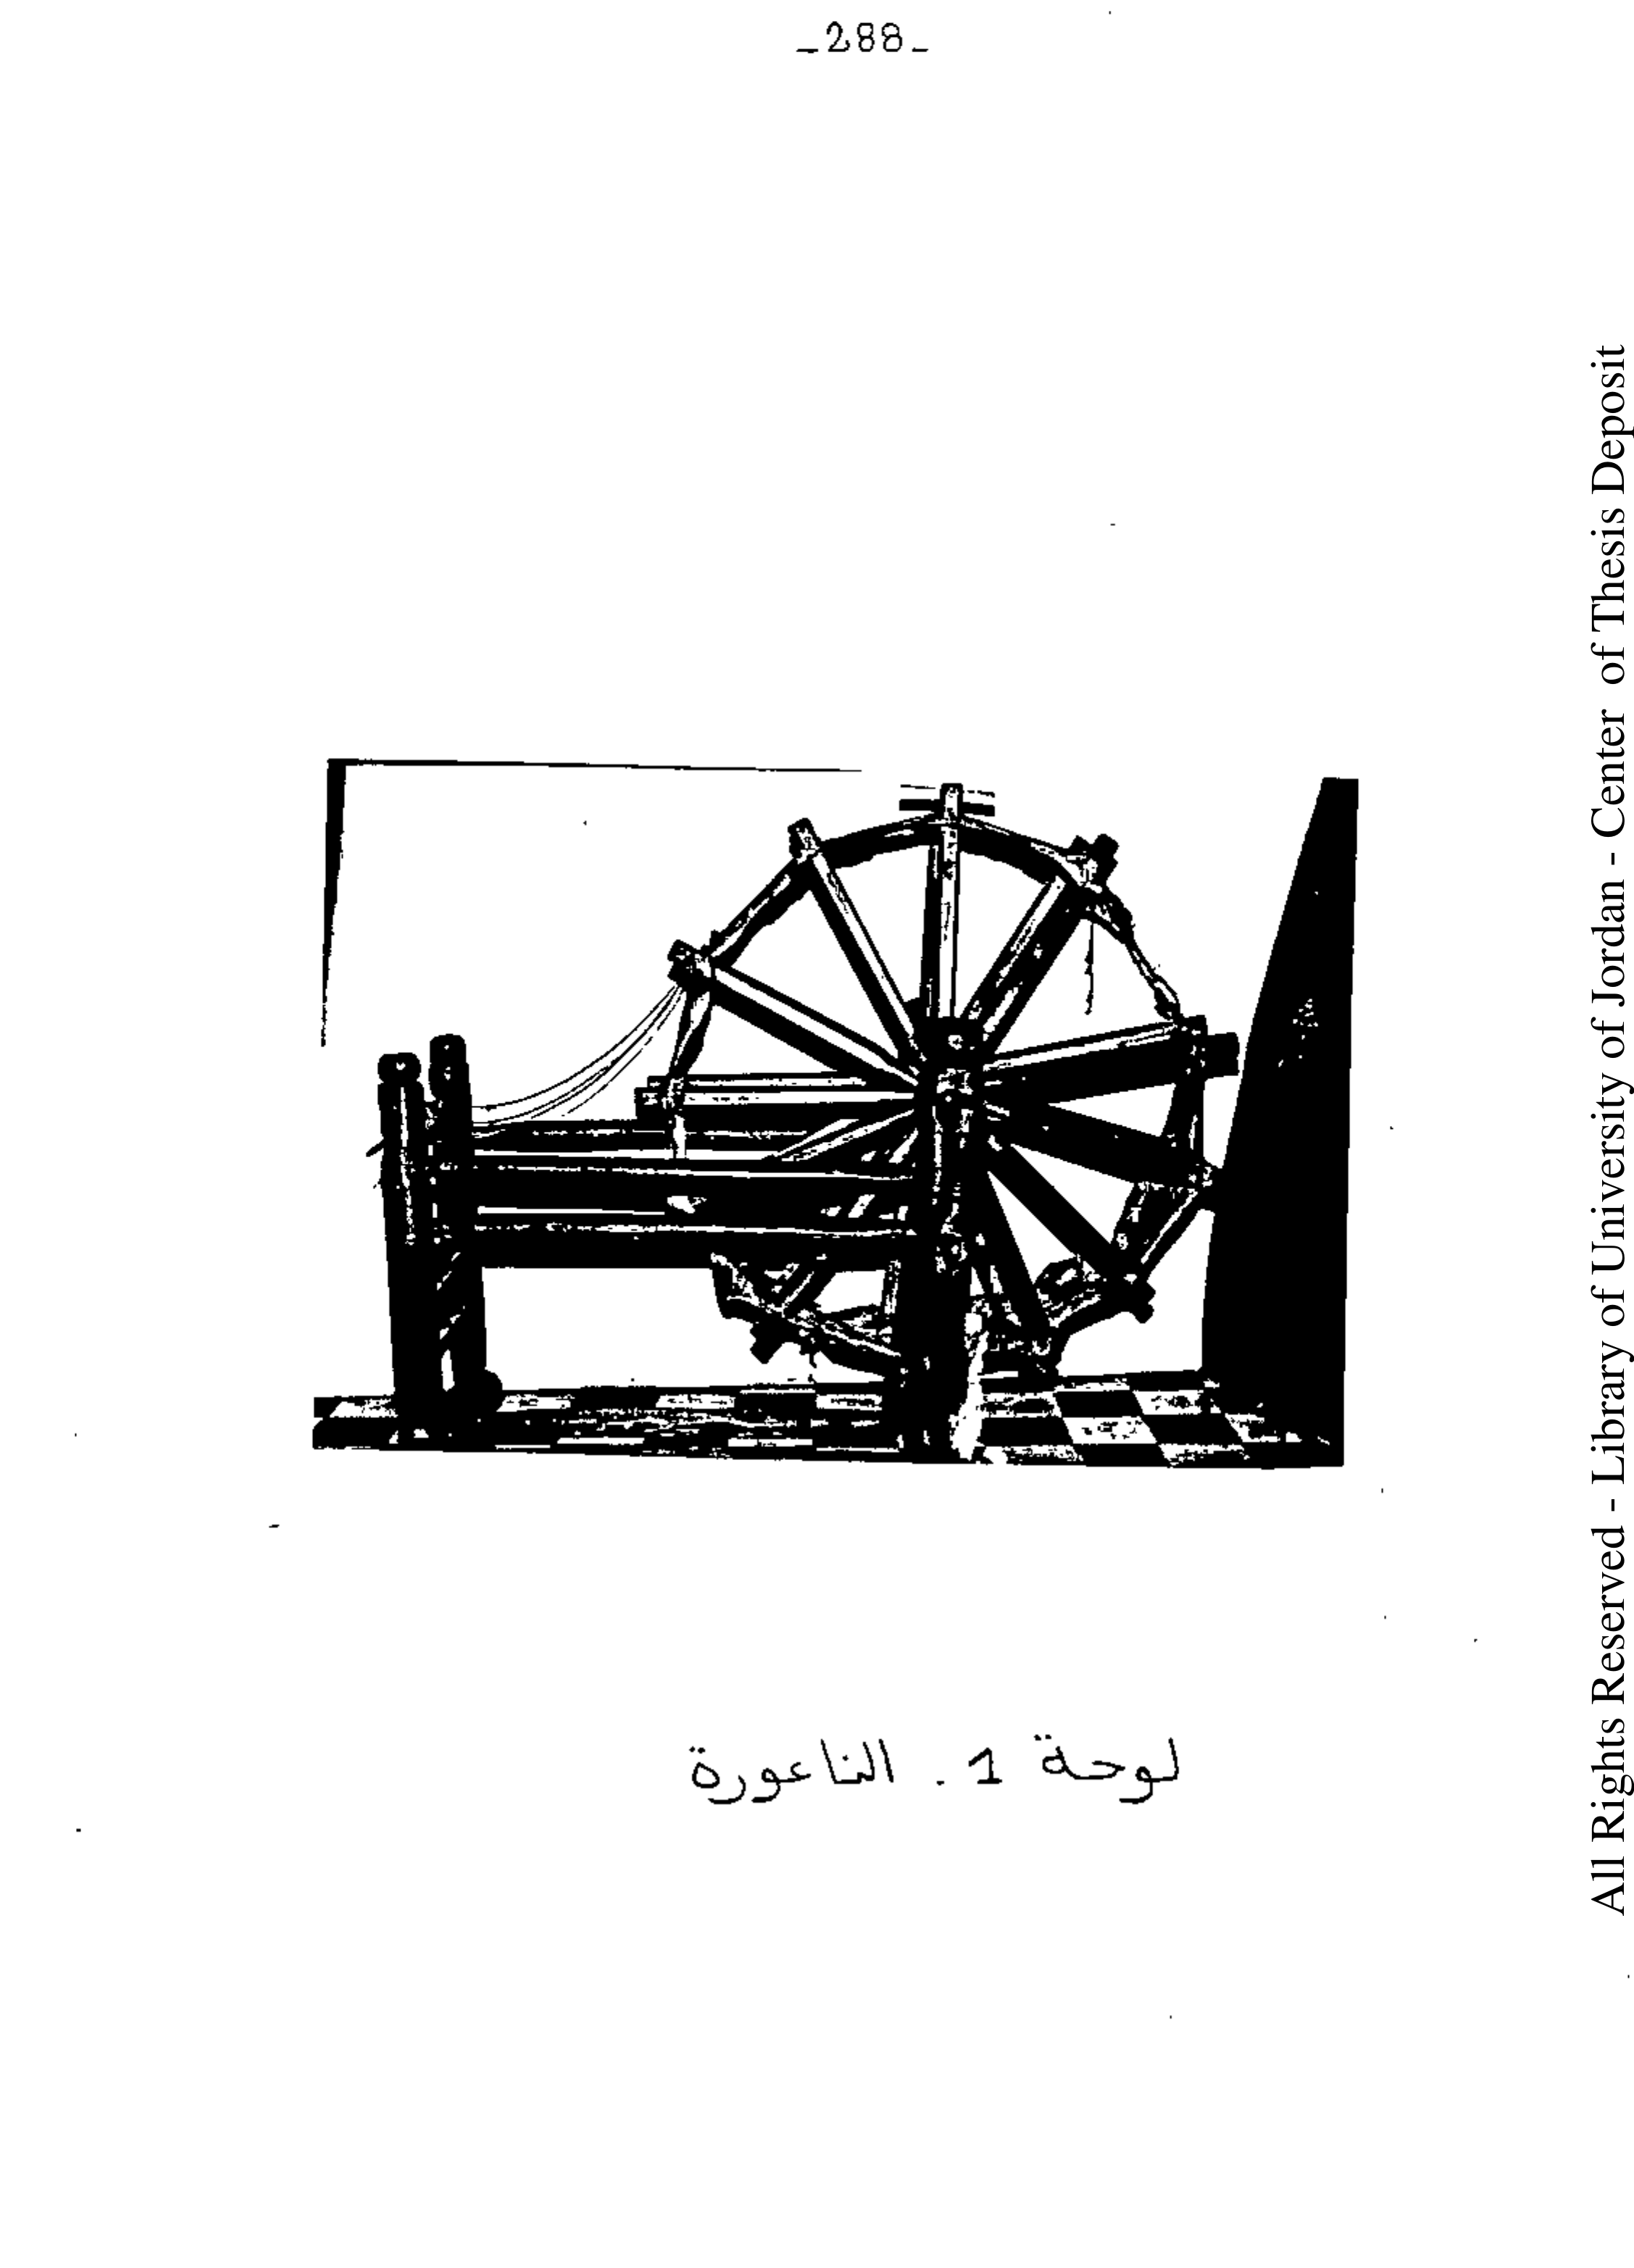 _288_
لوحة 1. الناعورة
All Rights Reserved - Library of University of Jordan - Center of Thesis Deposit